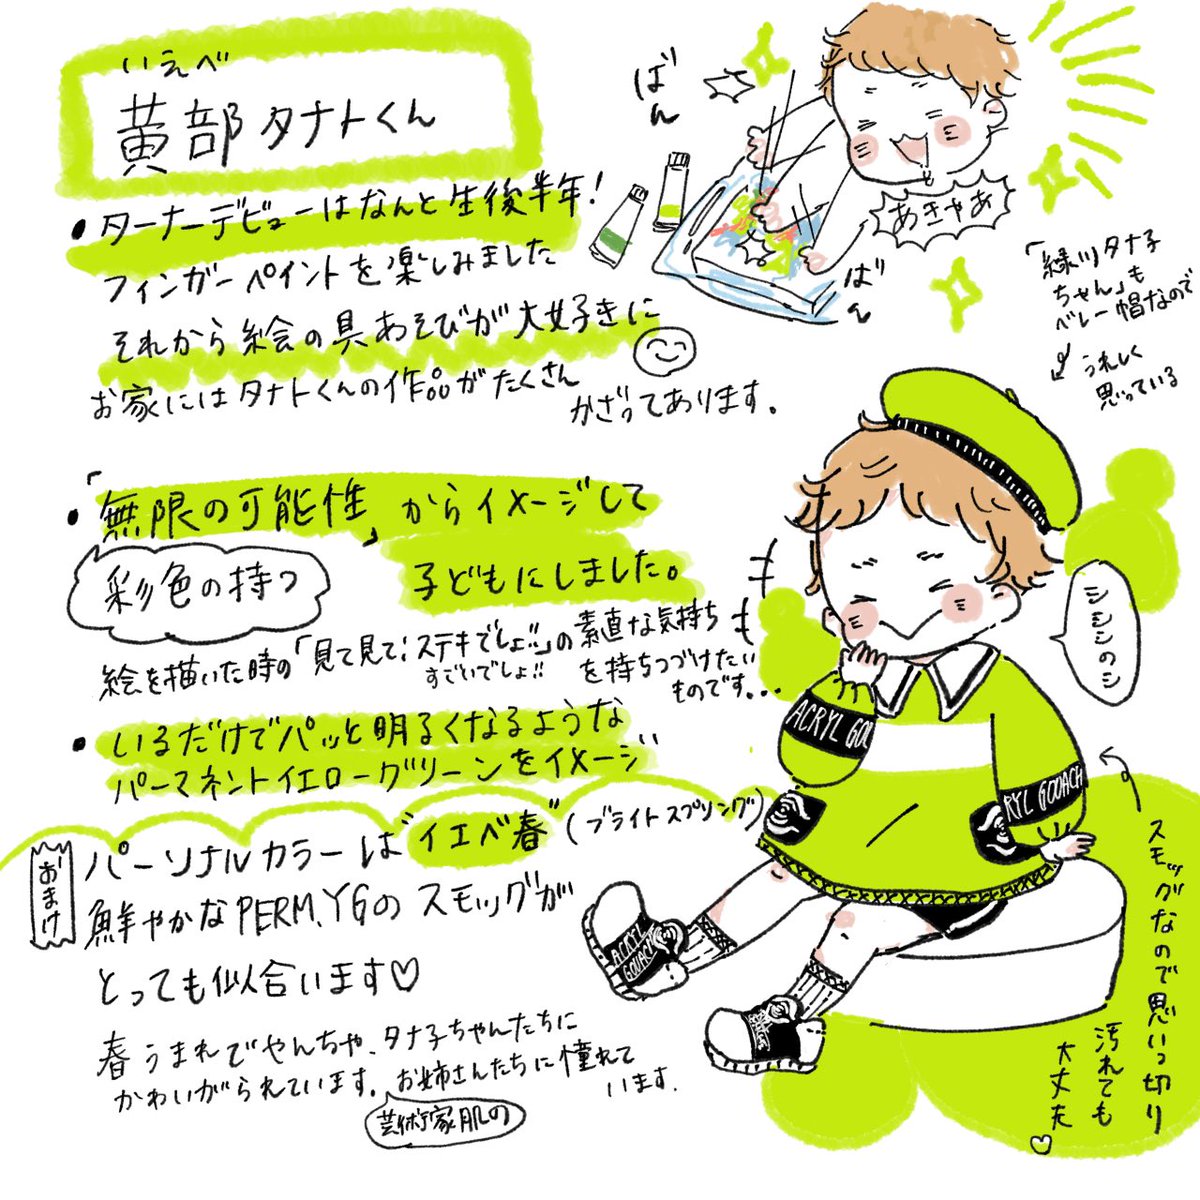 いえべ
黄部タナトくん
・ターナーデビューはなんと生後半年!
フィンガーペイントを楽しみました
それから絵の具あそびが大好きに
お家にはタナトくんの作品がたくさん
かざってあります。
ばん
ばん
あきゃあ
「緑川タナ子
ちゃん」も
ベレー帽なので
うれしく
思っている
・「無限の可能性」からイメージして
子どもにしました。
彩色の持つ
絵を描いた時の「見て見て!ステキでしょ!!」の素直な気持ち
すごいでしょ!!
を持ちつづけたい
ものです...
・いるだけでパッと明るくなるような
パーマネントイエローグリーンをイメージ
おまけ
パーソナルカラーは"イエベ春"(ブライトスプリング)
鮮やかなPERM.YGのスモッグが
とっても似合います♡
春うまれでやんちゃ、タナ子ちゃんたちに
かわいがられています。お姉さんたちに憧れて
います.
芸術家肌の
シシシのシ
ACRYL GOU
RYL GOUACH
ACRYL
GOUACH
スモッグなので思いっ切り
汚れても
大丈夫♡